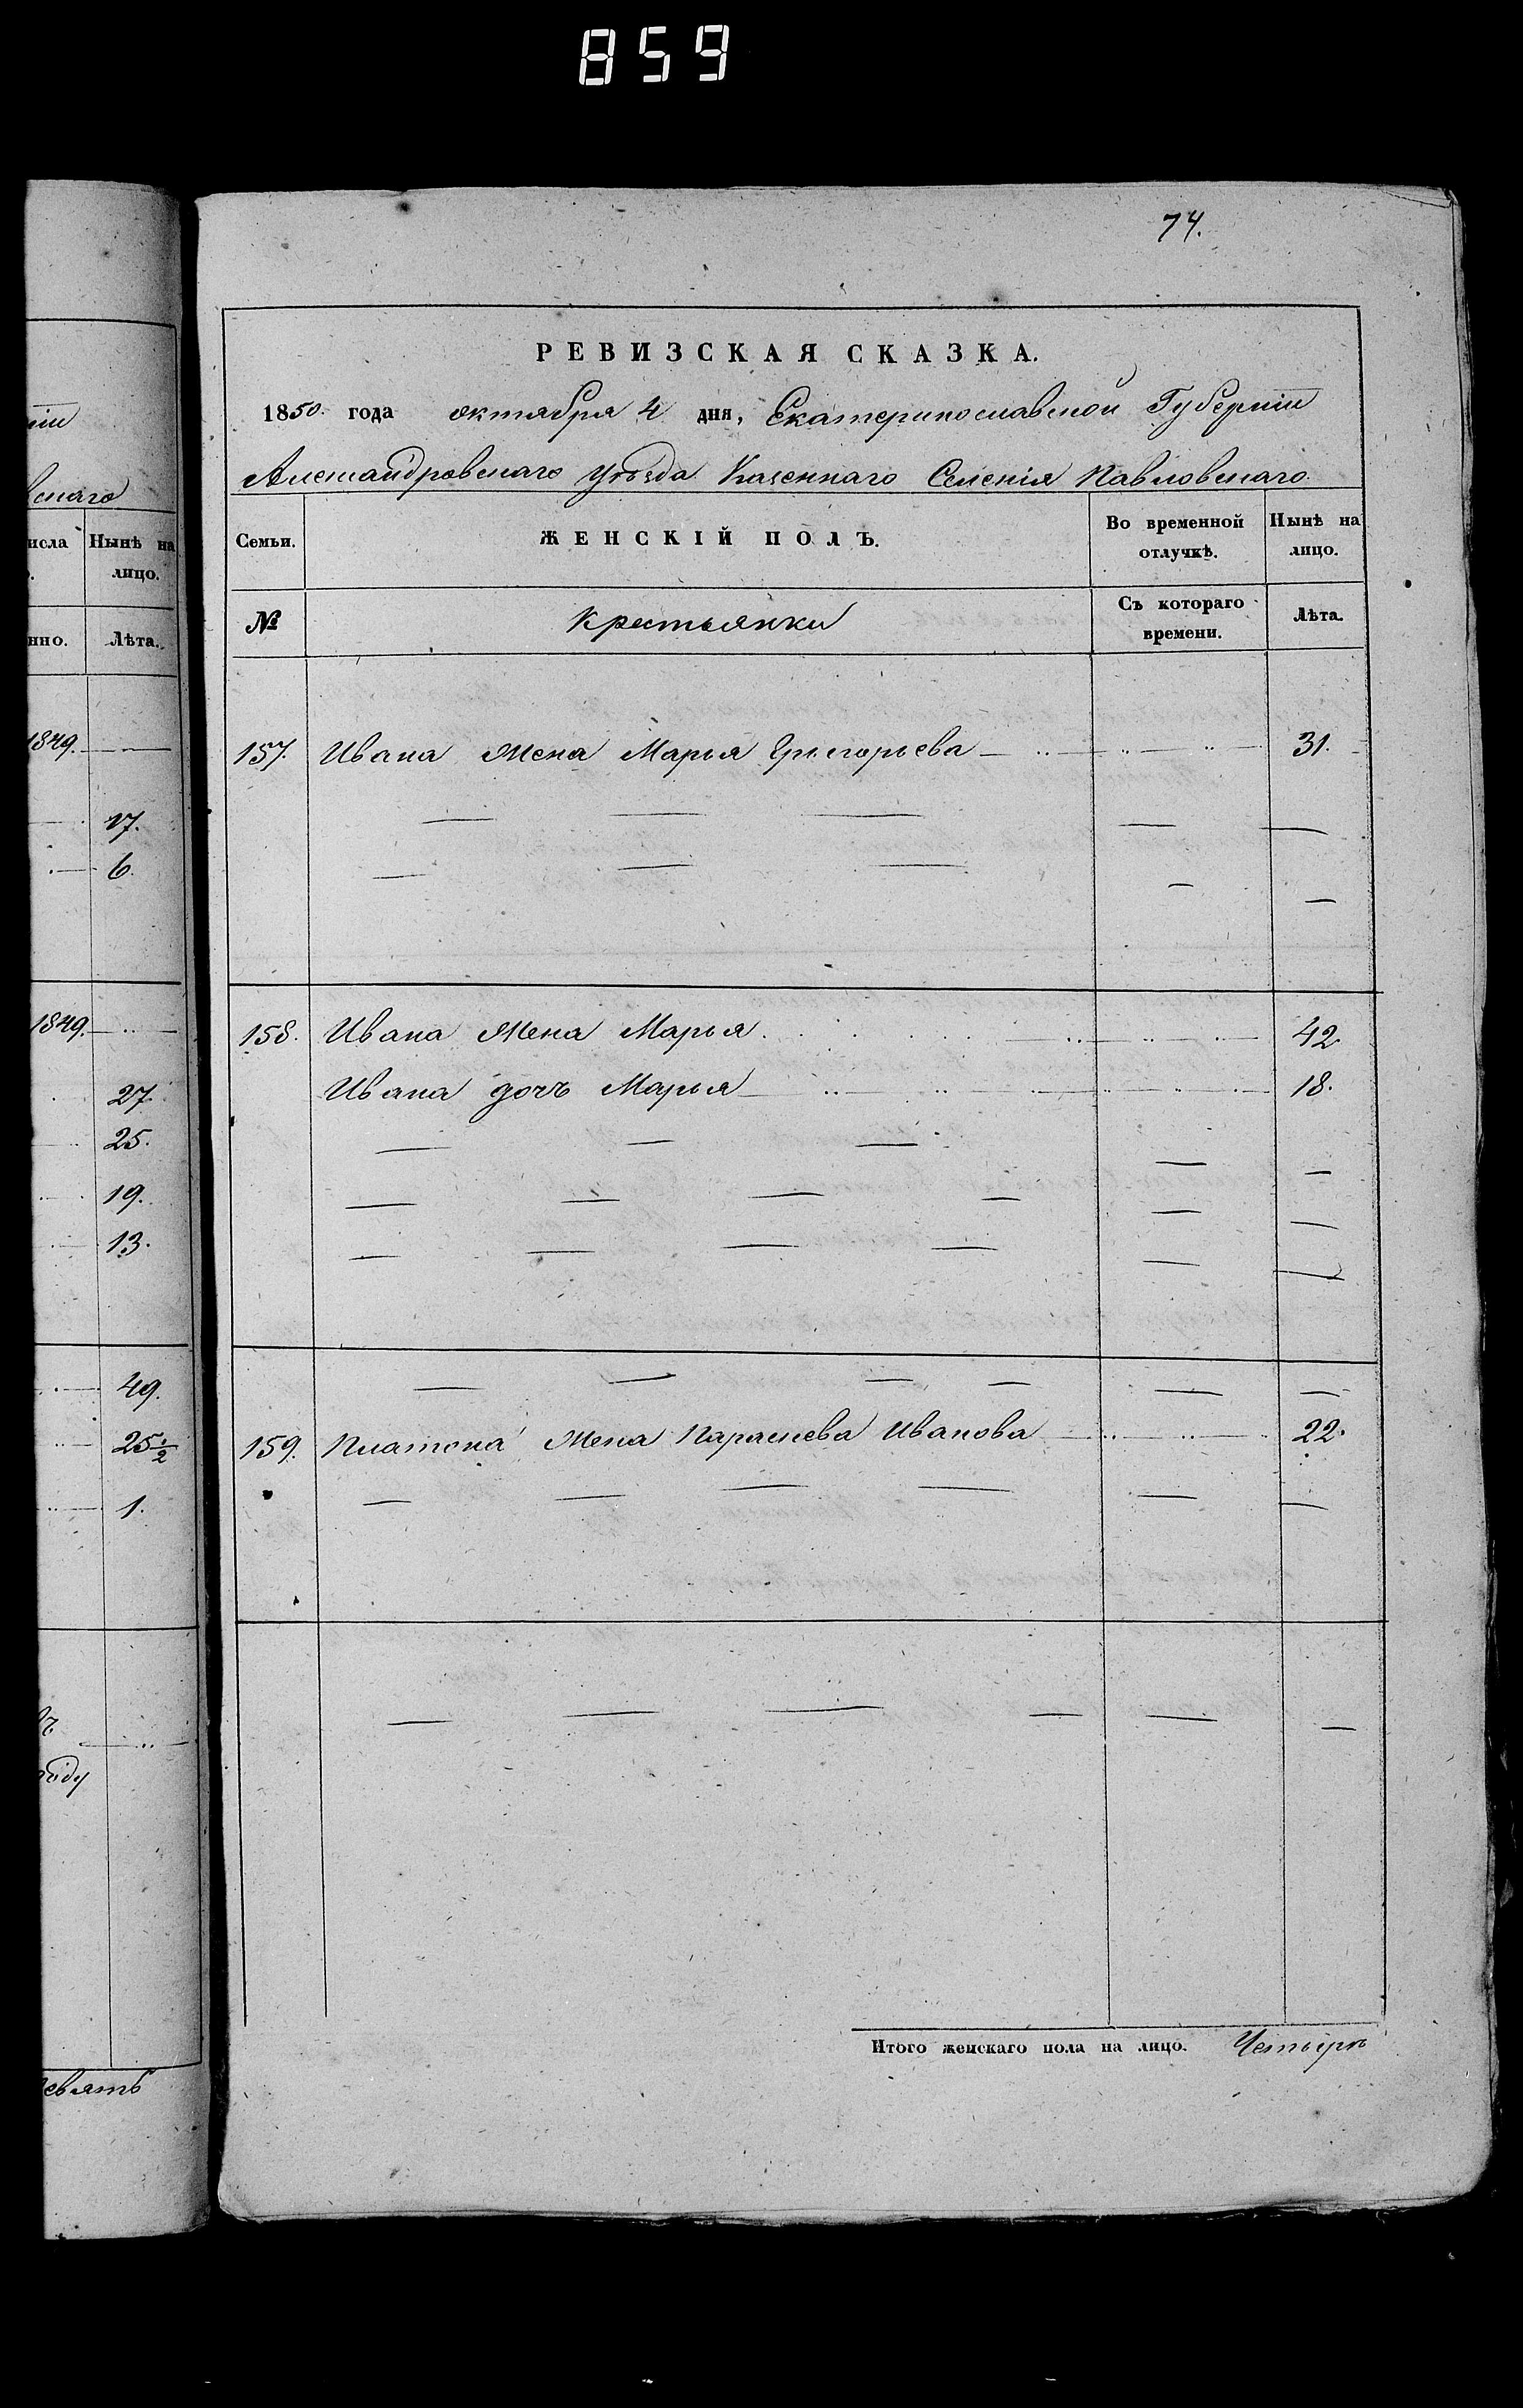 859
74.
РЕВИЗСКАЯ СКАЗКА.
1850. года октября 4 дня, Екатеринославской Губерніи
Александровскаго уѣзда Казеннаго Селенія Павловскаго.
Семьи.
ЖЕНСКІЙ ПОЛЪ.
Во временной отлучкѣ.
Нынѣ на лицо.
№
Крестьянки
Съ котораго времени.
Лѣта.
157. Ивана Жена Марья Григорьева 31.
158. Ивана Жена Марья 42
Ивана дочь Марья 18.
159. Платона Жена Параскева Иванова 22.
Итого женскаго пола на лицо. Четыре
скаго
Нынѣ на
лицо.
Лѣта.
1849.
17.
6.
1849.
27
25.
19.
13.
49.
25 1/2
1.